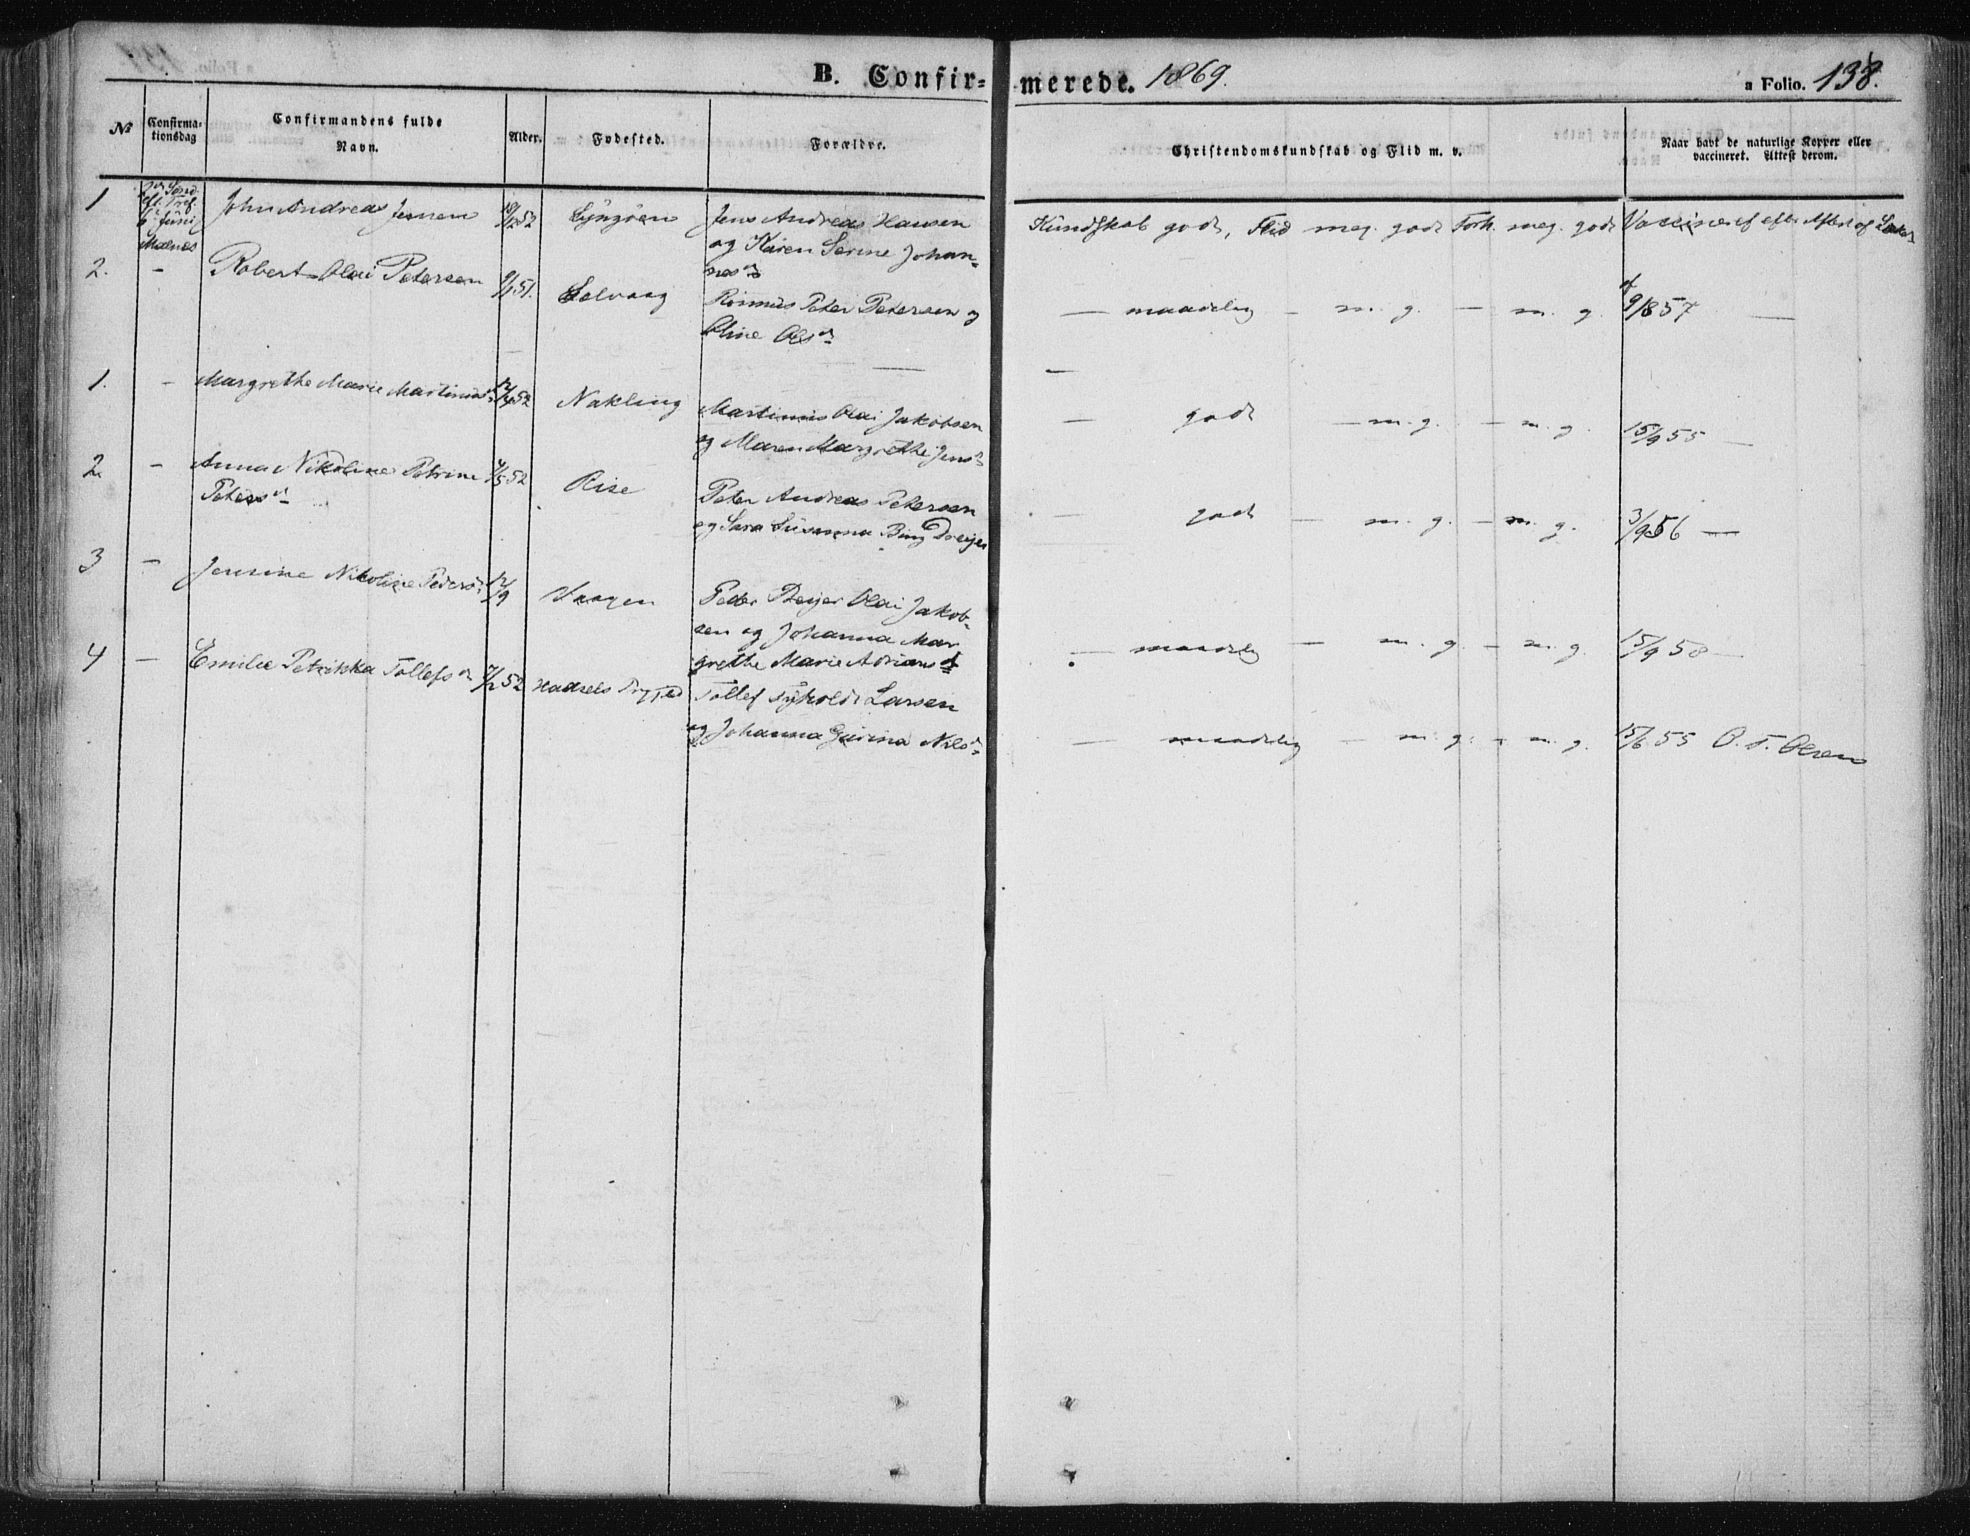 B. Confir=
merede. 1869.
a Folio. 138.
No
Confirma-
tionsdag
Confirmandens fulde
Navn.
Alder.
Fødested.
Forældre.
Christendomskundskab og Flid m. v.
Naar havt de naturlige Kopper eller
vaccineret. Attest derom.
1
6 Juni
John Andreas Jensen
Jens Andreas Hansen
og Karen Serine Johan-
Kundskab godt, Flid meg. godt Forh. meg. godt
2. - Robert Olai Petersen 51. Solvaag
Peter Petersen og
Oline Ols
— maadelig — m. g. — m. g. 9/8 57 —
1. - Margrethe Marie 52 Nakling
Martinus Olai Jakobsen
og Maren Margrethe Jens
— godt — m. g. — m. g. 15/9 55 —
2 - Anna Nikoline Petrine 52 Rise
Peters
Peter Andreas Petersen
og Sara Susanna Bing Dreyer
— godt — m. g. — m. g. 3/9 56 —
3 - Nikoline Peders 12/9 Vaagen
Peder Olai Jakob-
sen og Johanna Mar
grethe Marie Adrians
— maadelig — m. g. — m. g. 15/9 58 —
4 - Emilie Petrikka Tollefs 52 Hadsels
Tollef Larsen
og Johanna Gurina Nils
— maadelig — m. g. — m. g. 15/6 55 O. T. Olsen